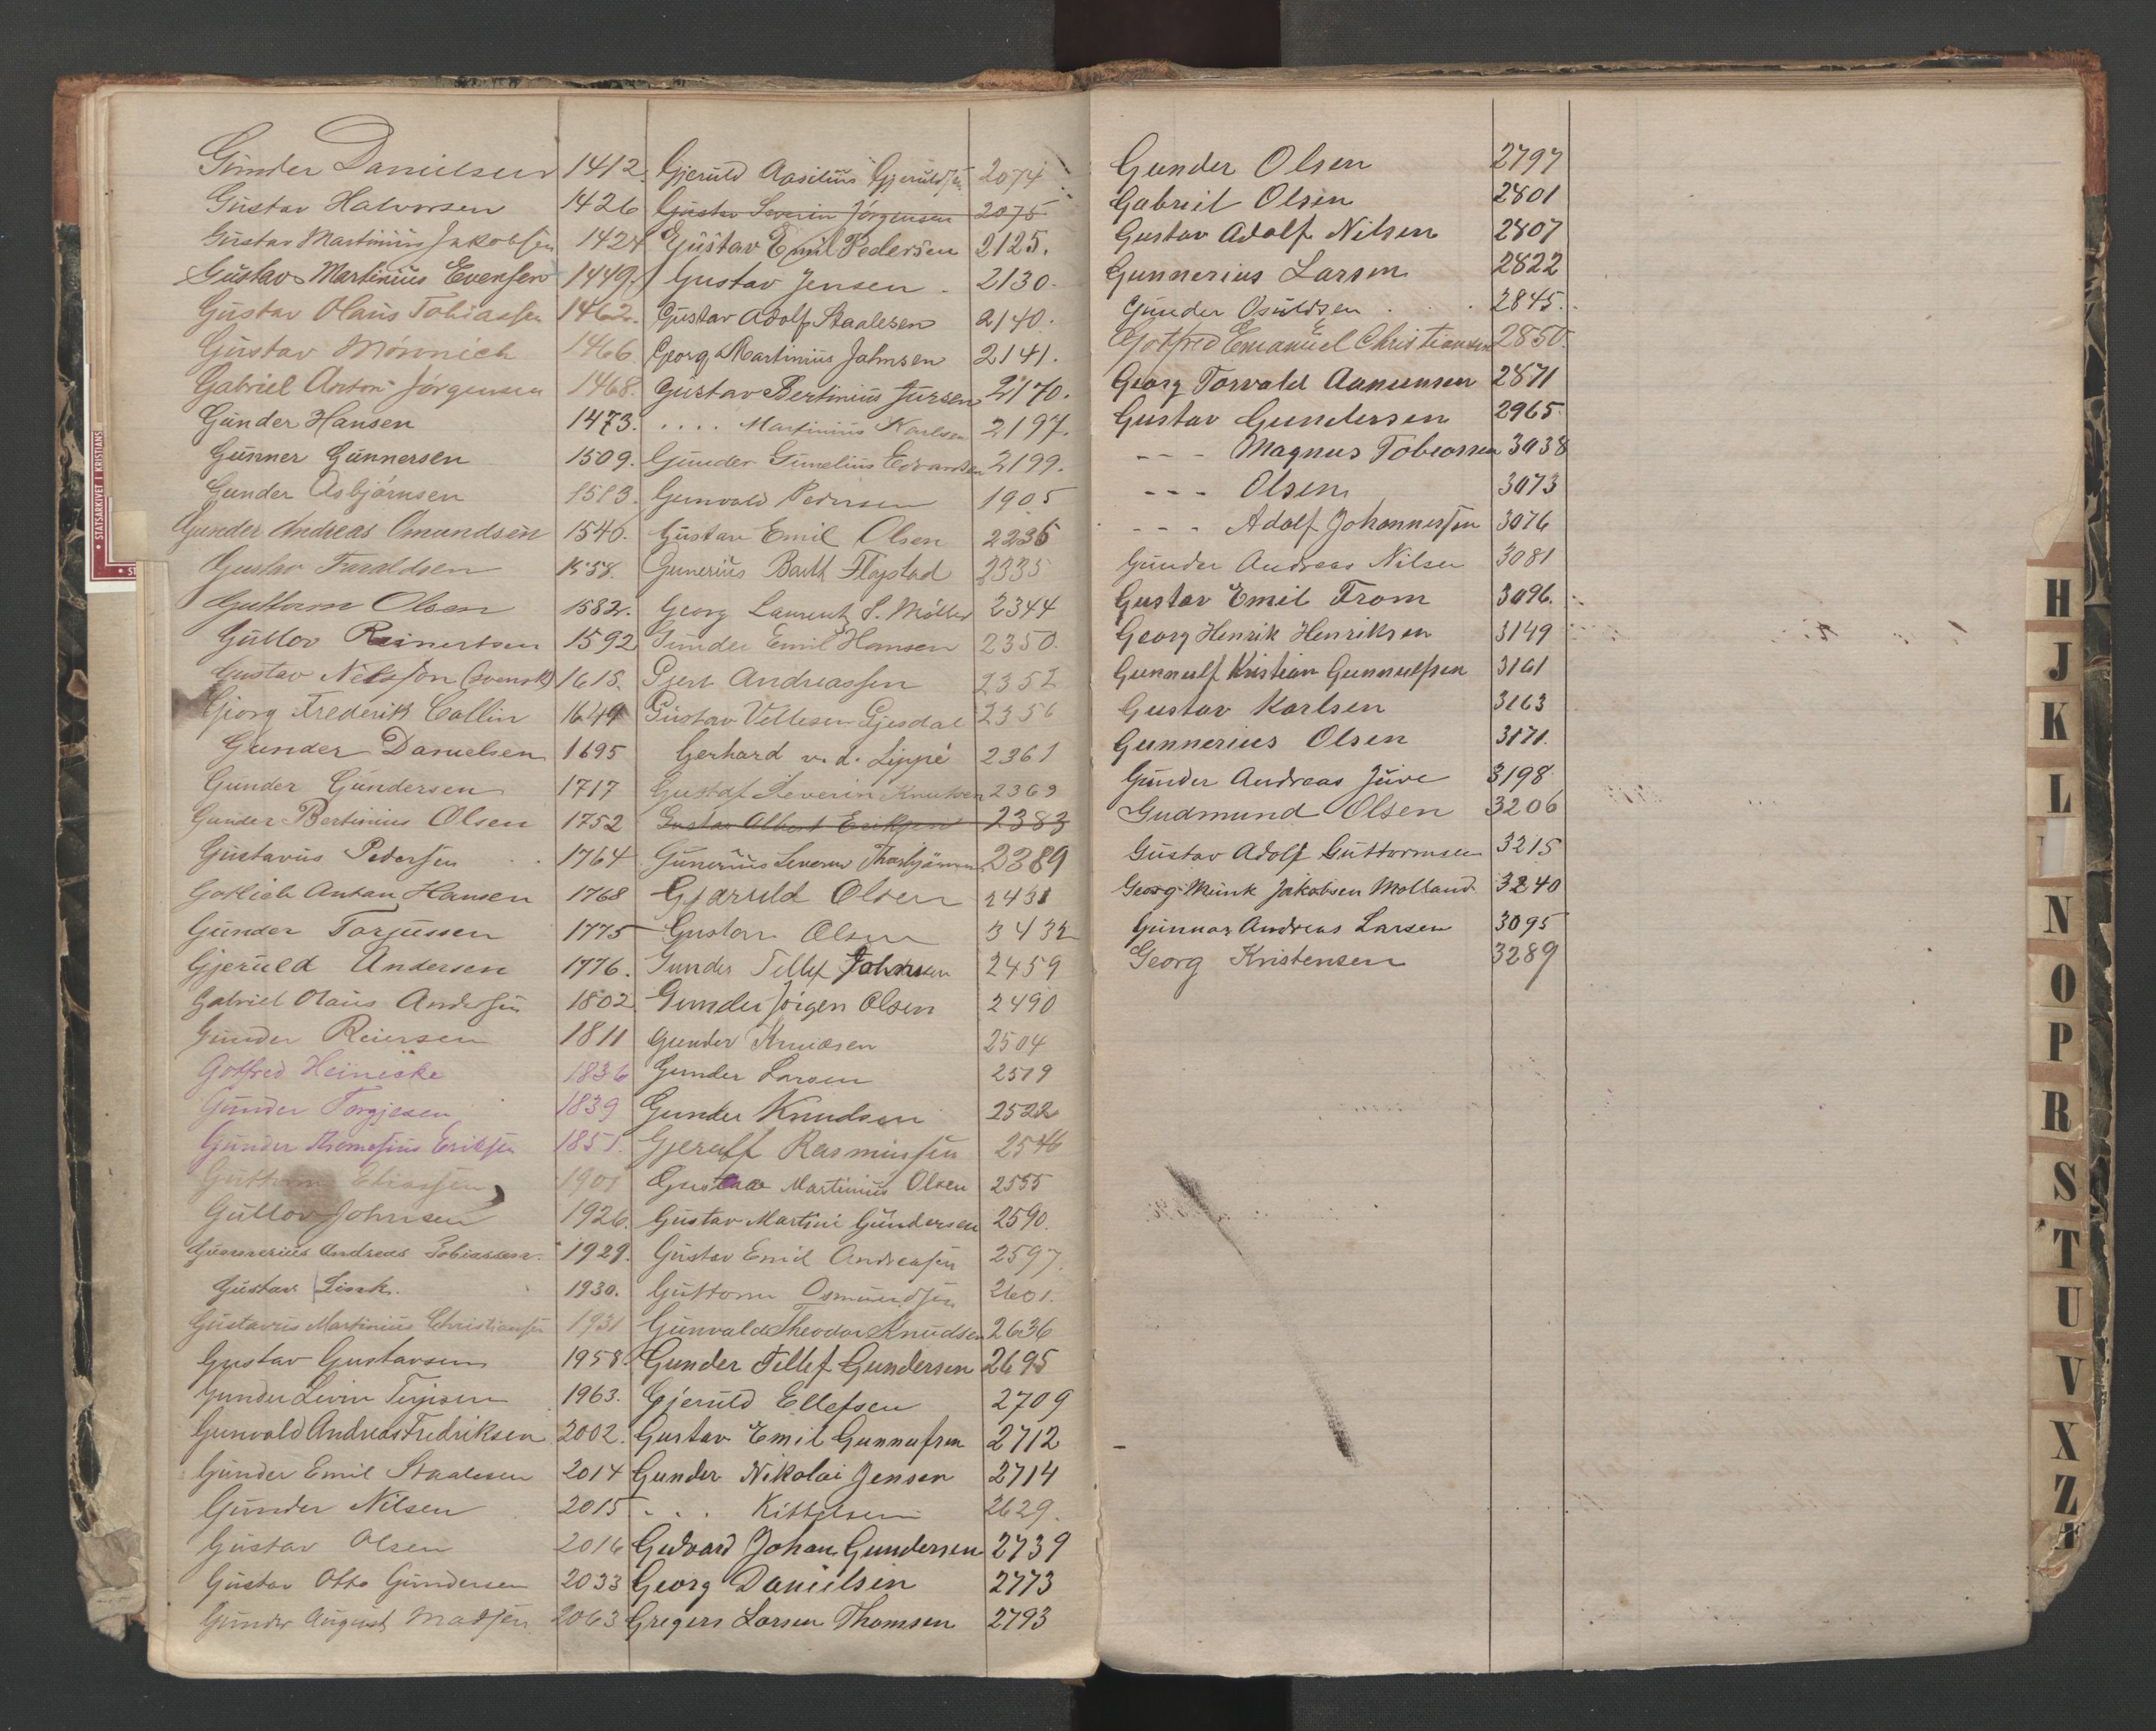 Gunder Danielsen 1412.
Gustav Halvorsen 1426
Gustav Martinius Jakobsen 1424
Gustav Martinius Evensen 1449.
Gustav Olaus Tobiassen 1462.
Gustav Mönnich 1466
Gabriel Anton Jörgensen 1468.
Gunder Hansen 1473.
Gunner Gunnersen 1509.
Gunder Asbjörnsen 1513.
Gunder Andreas Omundsen 1540.
Gustav Faraldsen 1558.
Guttorm Olsen 1582.
Gullov Reinertsen 1592
Gustav Nelsson (svensk) 1615.
Georg Frederik Collin 1649
Gunder Danielsen 1695
Gunder Gundersen 1717
Gunder Bertinius Olsen 1752
Gustavus Pedersen 1764
Gotlieb Anton Hansen 1768
Gunder Torjussen 1775
Gjeruld Andersen 1776.
Gabriel Olaus Andersen 1802
Gunder Reiersen 1811
Gotfred Heinecke 1836
Gunder Torgjesen 1839
Gunder Thomesius Eriksen 1851.
Guttorm Eliassen 1901
Gullov Johnsen 1926.
Gunnerius Andreas Tobiassen. 1929.
Gustav 1930.
Gustavus Martinius Christiansen 1931
Gustav Gustavsen 1958.
Gunder Levin Terjesen 1963.
Gunvald Andreas Fredriksen 2002.
Gunder Emil Staalesen 2014
Gunder Nilsen 2015
Gustav Olsen 2016
Gustav Otto Gundersen 2033
Gunder August Madsen 2063
Gjeruld Aasilius Gjeruldsen 2074
Gustav Severin Jörgensen 2075
Gustav Emil Pedersen 2125.
Gustav Jensen 2130.
Gustav Adolf Staalesen 2140.
Georg Martinius Johnsen 2141.
Gustav Bertinius Jursen 2170.
.... Martinius Karlsen 2197.
Gunder Gunelius Edvardsen 2199.
Gunvald Pedersen 1905
Gustav Emil Olsen 2236
Gunerius Barth Flagstad 2335
Georg Laurentz S. Möller 2344
Gunder Emil Hansen 2350.
Gjert Andreassen 2352
Gustav Vellesen Gjesdal 2356
Gerhard v. d. Lippe 2361
Gustaf Severin Knutsen 2369
Gustav Albert Eriksen 2383
Gunerius Severin Thorbjörnsen 2389
Gjaruld Olsen 2431
Gustav Olsen 3432
Gunder Tellef Johnsen 2459
Gunder Jörgen Olsen 2490
Gunder Knudsen 2504
Gunder Larsen 2519
Gunder Knudsen 2522
Gjerulf Rasmussen 2546
Gustav Martinius Olsen 2555
Gustav Martini Gundersen 2590.
Gustav Emil Andreasen 2597.
Guttorm Osmundsen 2601.
Gunvald Theodor Knudsen 2636
Gunder Tellef Gundersen 2695
Gjeruld Ellefsen 2709
Gustav Emil Gunnufsen 2712
Gunder Nikolai Jensen 2714
... Kittelsen 2629.
Gedvard Johan Gundersen 2739
Georg Danielsen 2773
Gregers Larsen Thomsen 2793
Gunder Olsen 2797
Gabriel Olsen 2801
Gustav Adolf Nilsen 2807
Gunnerius Larsen 2822
Gunder Osuldsen 2845.
Gotfred Emanuel Christiansen 2850.
Georg Torvald Aanensen 2871
Gustav Gundersen 2965.
--- Magnus Tobiassen 3038
--- Olsen 3073
--- Adolf Johannessen 3076
Gunder Andreas Nilsen 3081
Gustav Emil From 3096.
Georg Henrik Henriksen 3149
Gunnulf Kristian Gunnulfsen 3161
Gustav Karlsen 3163
Gunnerius Olsen 3171.
Gunder Andreas Juve 3198
Gudmund Olsen 3206
Gustav Adolf Guttormsen 3215
Georg Munk Jakobsen Molland 3240
Gunnar Andreas Larsen 3095
Georg Kristensen 3289
• STATSARKIVET I KRISTIANS
H
J
K
L
N
O
P
R
S
T
U
V
X
Z
Æ